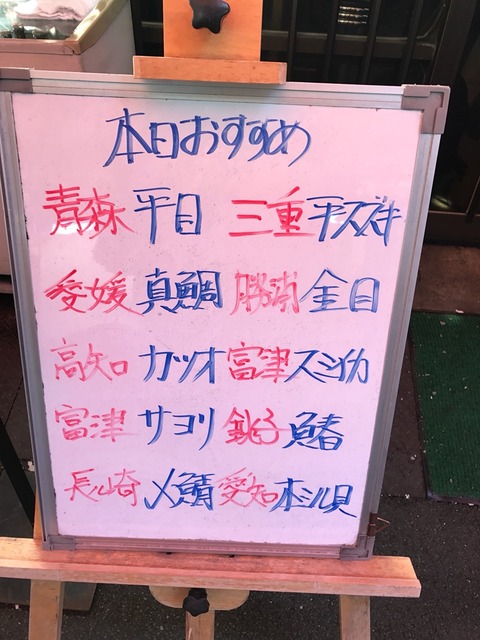 本日おすすめ
青森 平目 三重 平スズキ
愛媛 真鯛 勝浦 金目
高知 カツオ 富津 スミイカ
富津 サヨリ 銚子 鰆
長崎 〆鯖 愛知 本ミル貝